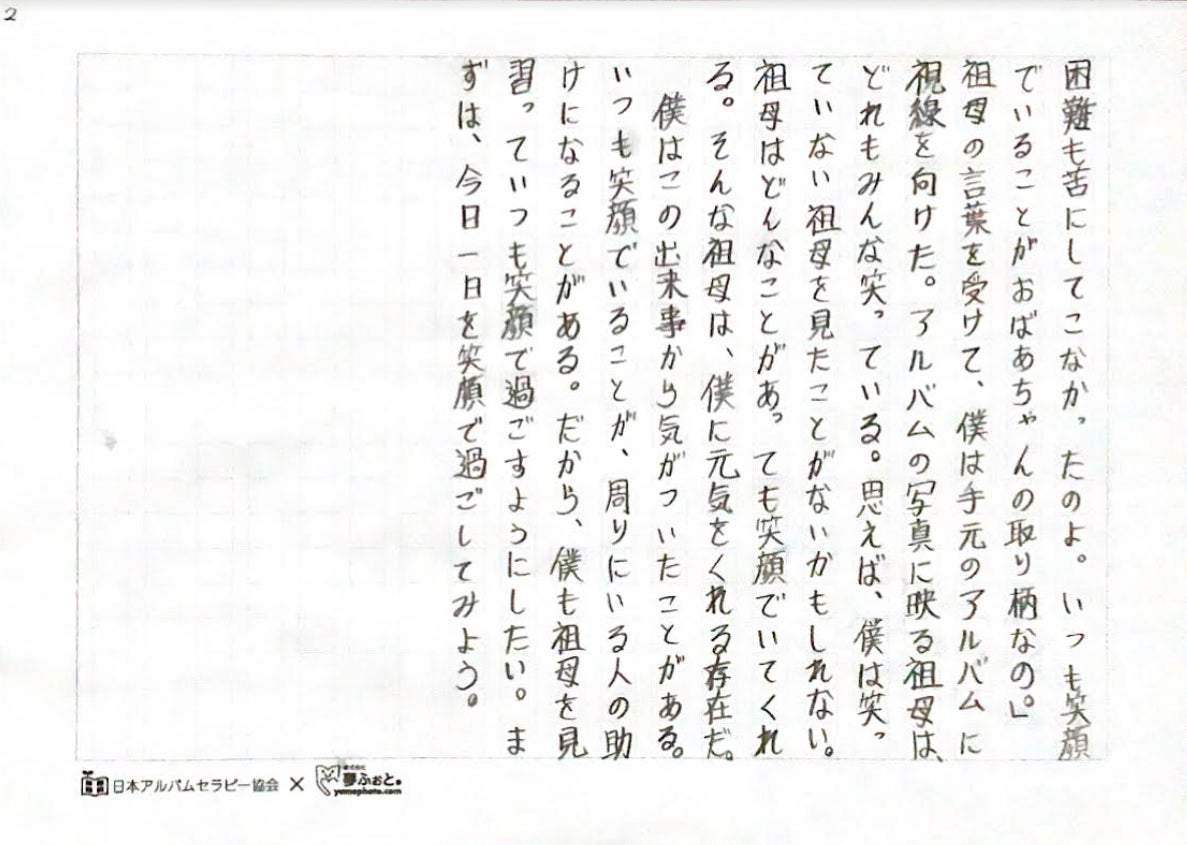 2
困難も苦にしてこなかったのよ。いつも笑顔
でいることがおばあちゃんの取り柄なの。」
祖母の言葉を受けて、僕は手元のアルバムに
視線を向けた。アルバムの写真に映る祖母は、
どれもみんな笑っている。思えば、僕は笑っ
ていない祖母を見たことがないかもしれない。
祖母はどんなことがあっても笑顔でいてくれ
る。そんな祖母は、僕に元気をくれる存在だ。
僕はこの出来事から気がついたことがある。
いつも笑顔でいることが、周りにいる人の助
けになることがある。だから、僕も祖母を見
習っていつも笑顔で過ごすようにしたい。ま
ずは、今日一日を笑顔で過ごしてみよう。
日本アルバムセラピー協会 × 株式会社 夢ふぉと。
yumephoto.com